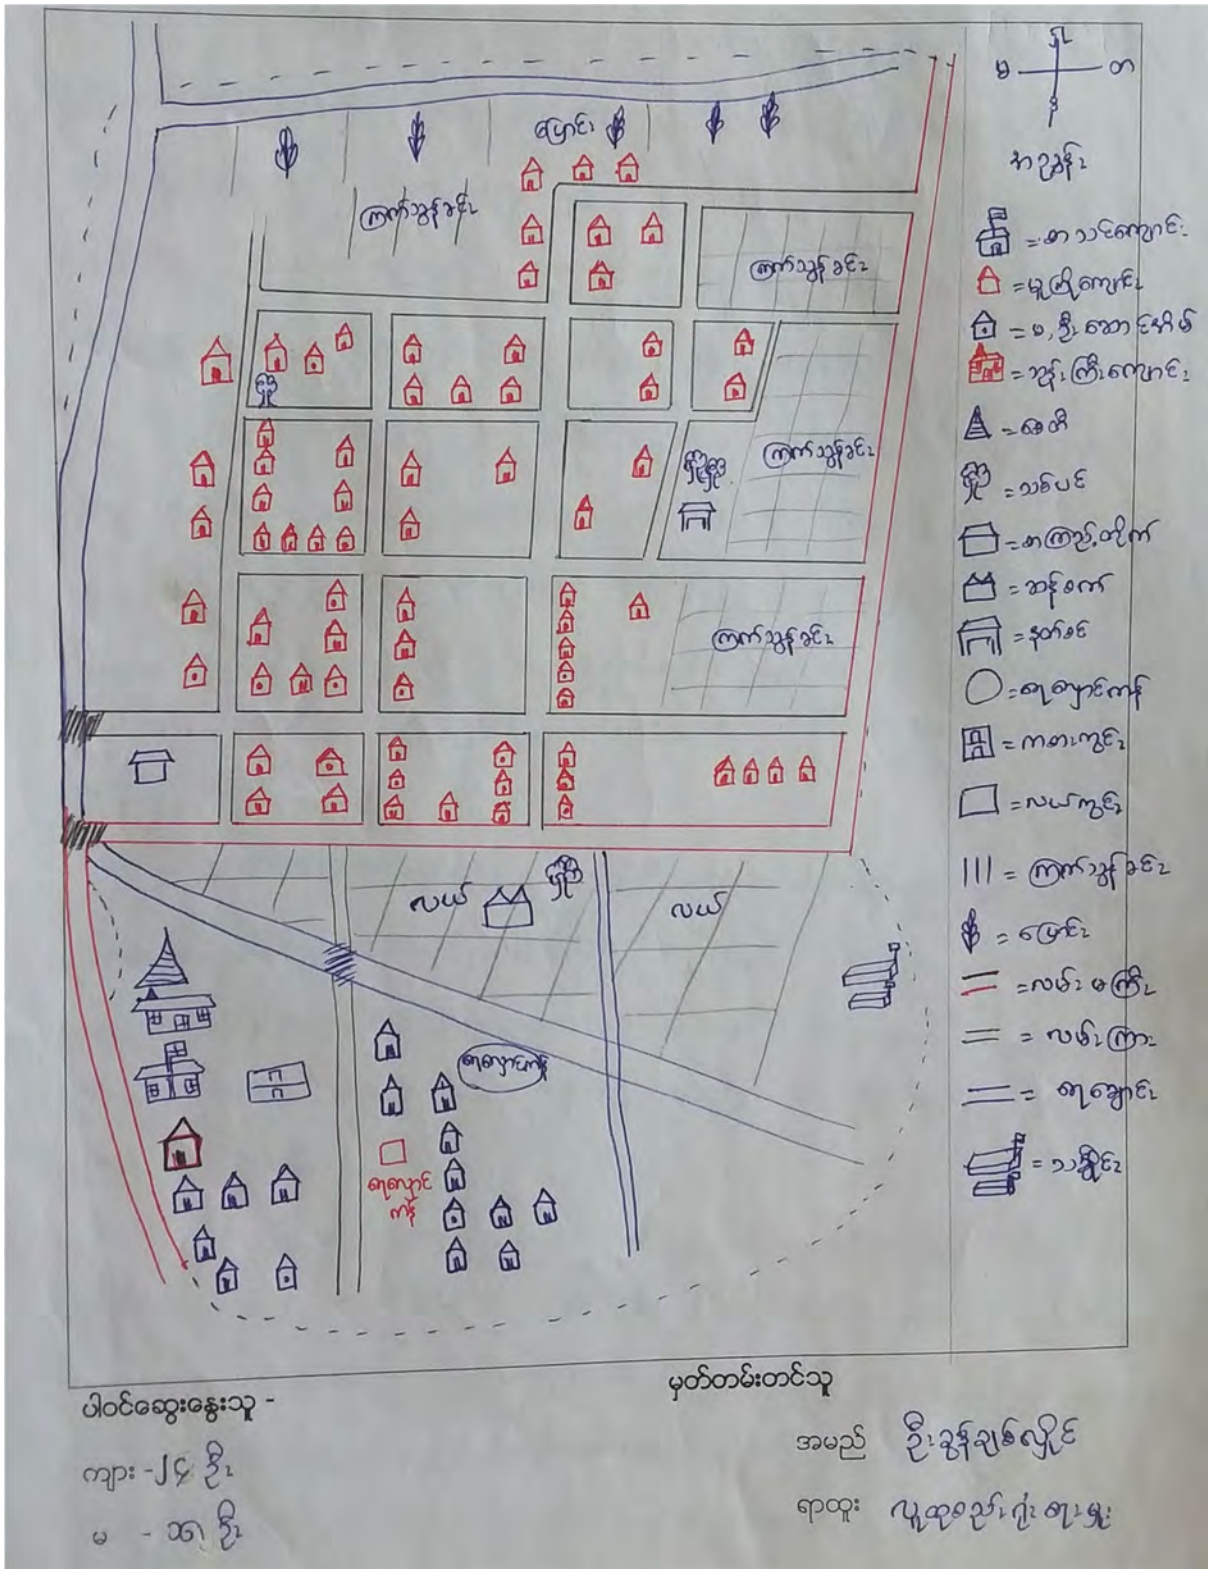 မြောက်
အ တ
တောင်
အညွှန်း
= စာသင်ကျောင်း
= မူကြိုကျောင်း
= မ, ဦးဆောင်အိမ်
= ဘုန်းကြီးကျောင်း
= စေတီ
= သစ်ပင်
= စာကြည့်တိုက်
= ဆန်စက်
= နတ်စင်
= ရေလှောင်ကန်
= ကစားကွင်း
= လယ်ကွင်း
= ကြက်သွန်ခင်း
= ပြောင်း
= လမ်းမကြီး
= လမ်းကြား
= ရေချောင်း
= သင်္ချိုင်း
ပြောင်း
ကြက်သွန်ခင်း
ကြက်သွန်ခင်း
ကြက်သွန်ခင်း
ကြက်သွန်ခင်း
လယ်
လယ်
ရေလှောင်ကန်
ရေလှောင်
ကန်
ပါဝင်ဆွေးနွေးသူ -
ကျား - ၂၄ ဦး
မ - ၁၈ ဦး
မှတ်တမ်းတင်သူ
အမည် ဦးခွန်ချစ်လှိုင်
ရာထူး လူထုစည်းရုံးရေးမှူး